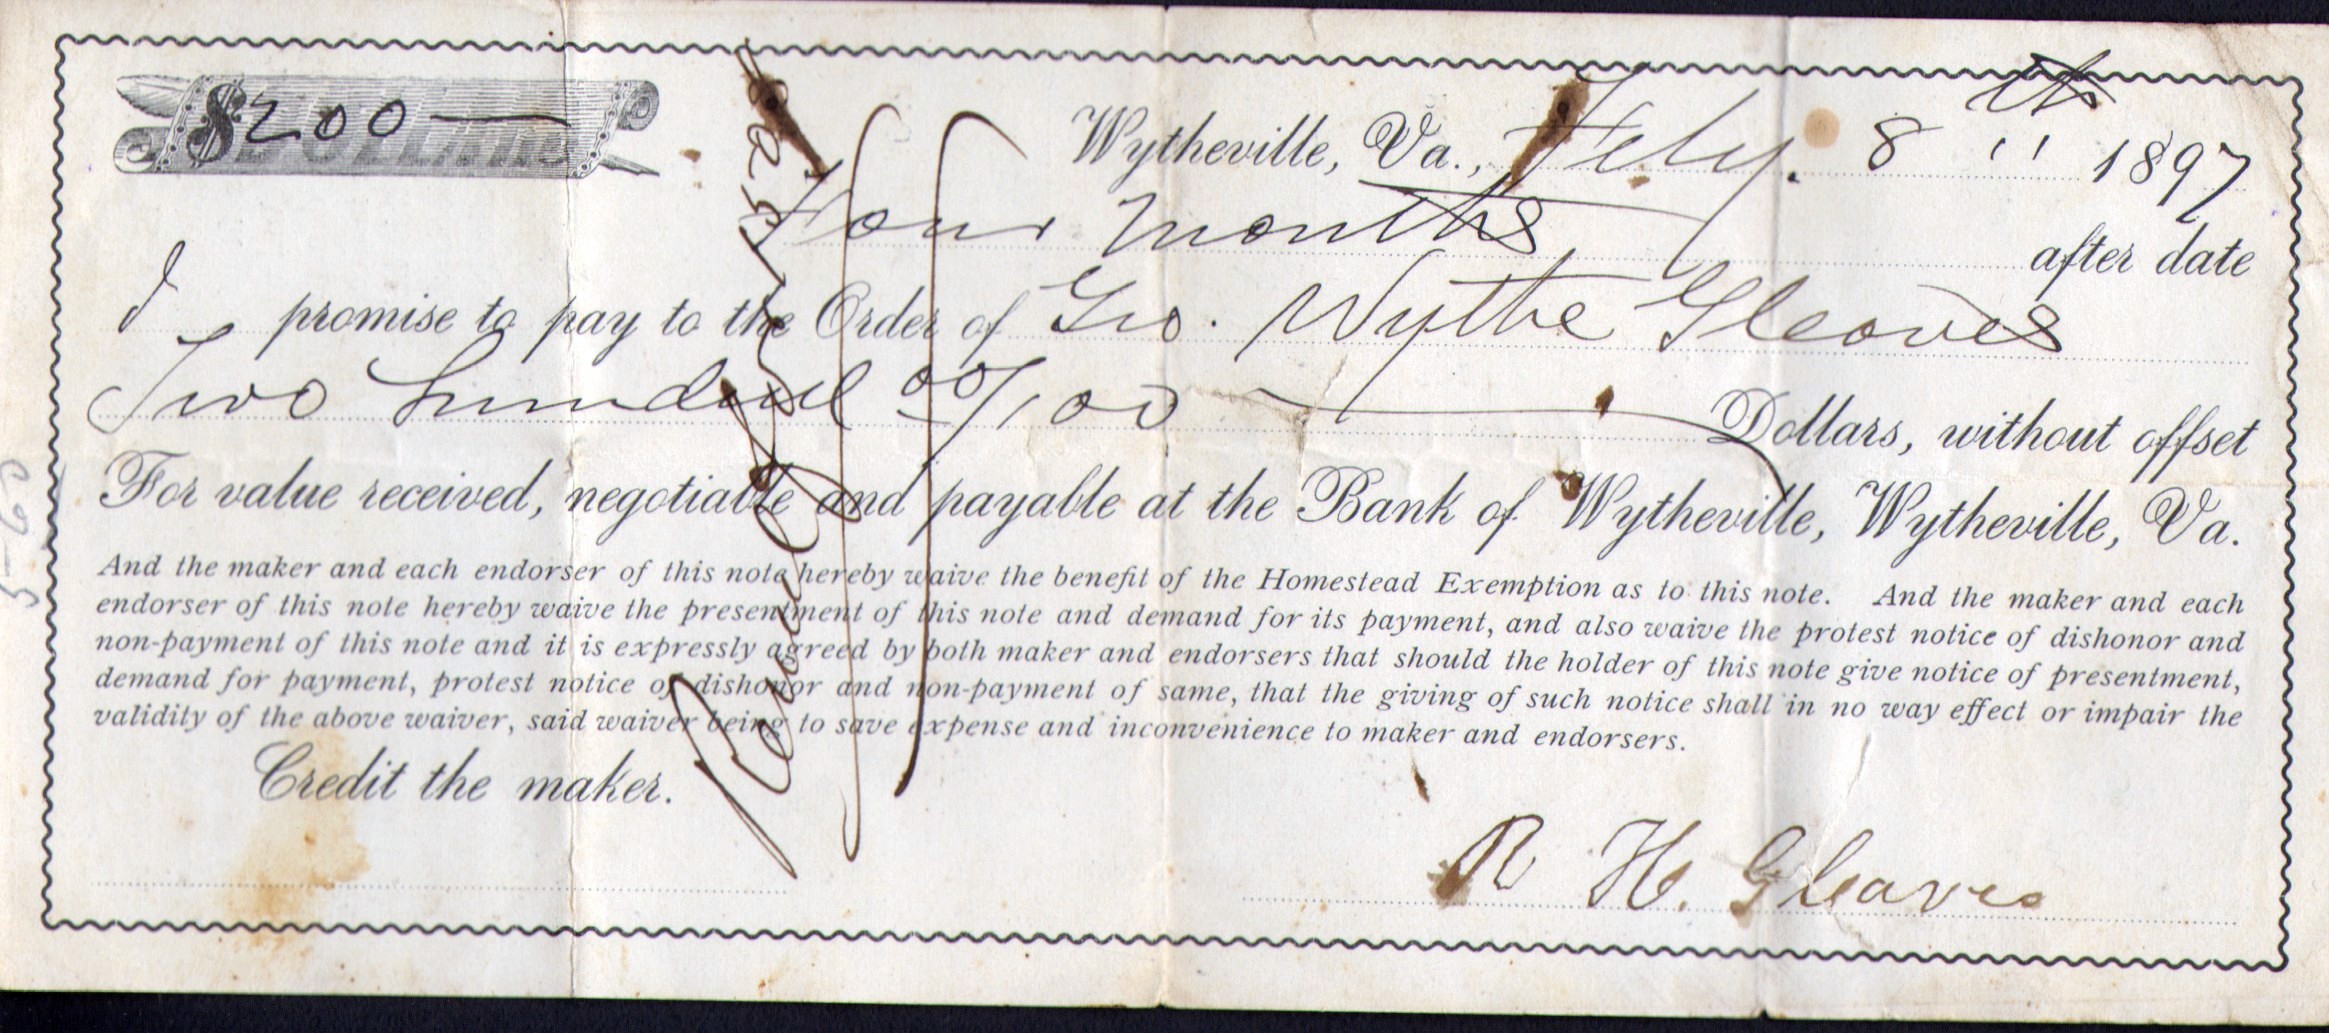 $200—
Wytheville, Va., Feby. 8th 1897
Four months after date
I promise to pay to the Order of Geo. Wythe Gleaves
Two hundred 00/100 Dollars, without offset
For value received, negotiable and payable at the Bank of Wytheville, Wytheville, Va.
And the maker and each endorser of this note hereby waive the benefit of the Homestead Exemption as to this note. And the maker and each
endorser of this note hereby waive the presentment of this note and demand for its payment, and also waive the protest notice of dishonor and
non-payment of this note and it is expressly agreed by both maker and endorsers that should the holder of this note give notice of presentment,
demand for payment, protest notice of dishonor and non-payment of same, that the giving of such notice shall in no way effect or impair the
validity of the above waiver, said waiver being to save expense and inconvenience to maker and endorsers.
Credit the maker.
R H. Gleaves